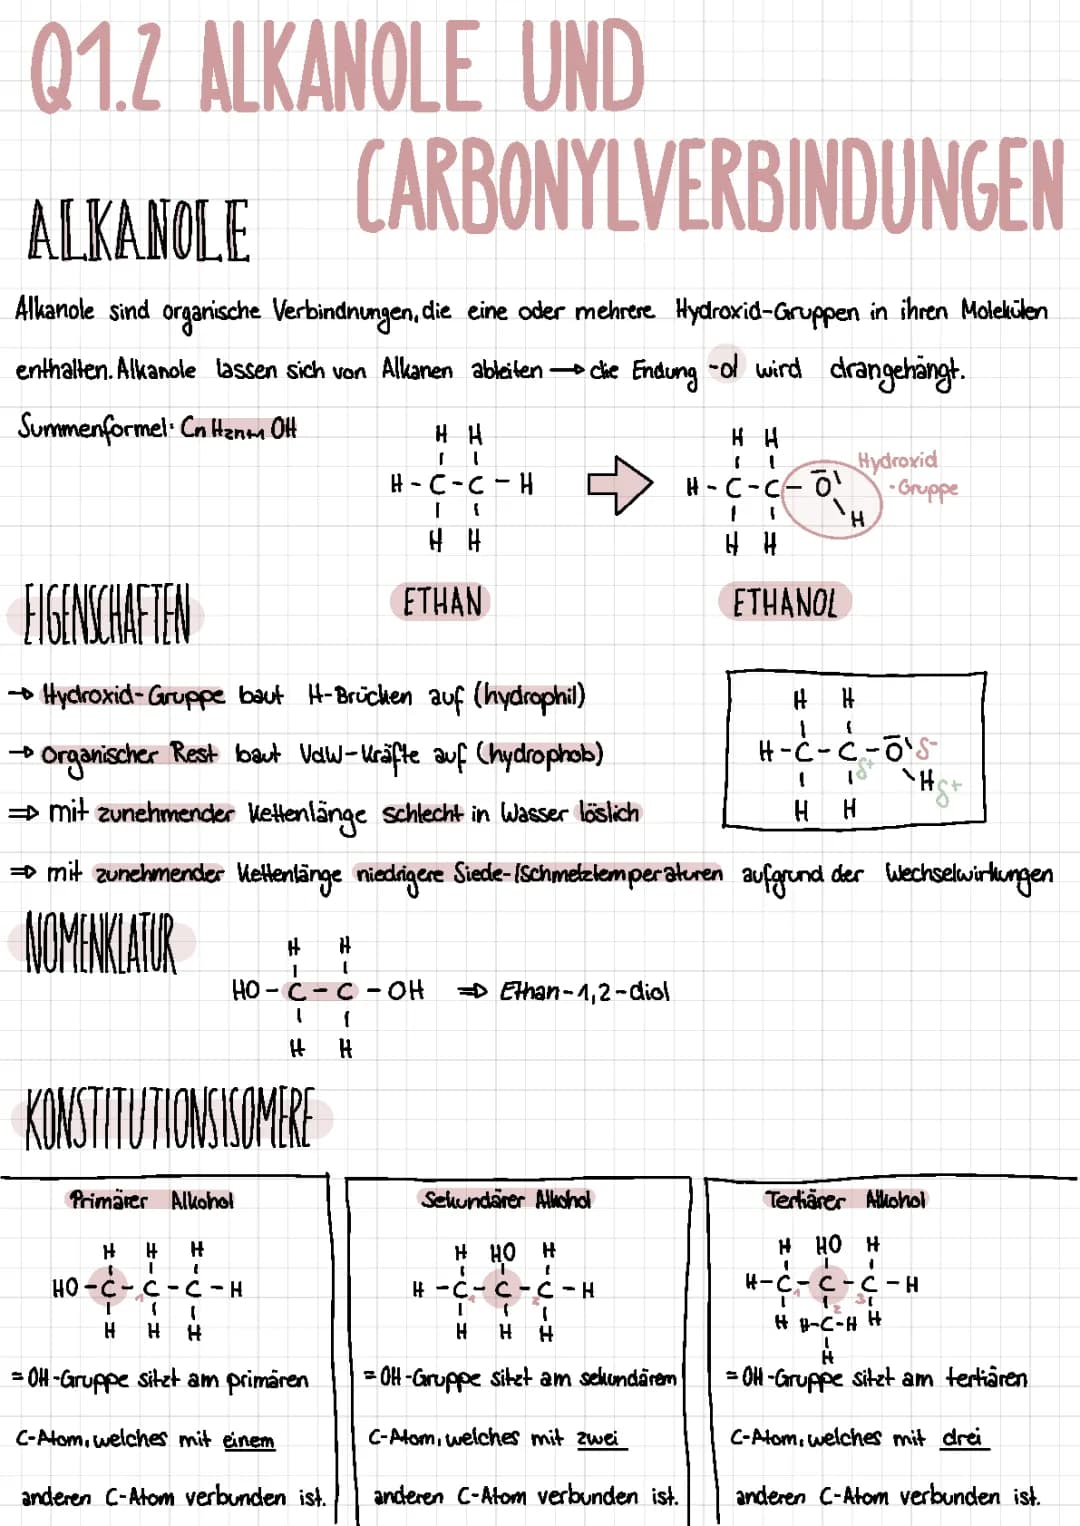 Q1.2 ALKANOLE UND
CARBONYLVERBINDUNGEN
ALKANOLE
Alkanole sind organische Verbindnungen, die eine oder mehrere Hydroxid-Gruppen in ihren Molekülen
enthalten. Alkanole lassen sich von Alkanen ableiten → die Endung -ol wird drangehängt.
Summenformel: CnH2n+1 OH
H H
H - C - C - H
H H
H H
H - C - C - O
H
H H
Hydroxid
-Gruppe
ETHAN
ETHANOL
EIGENSCHAFTEN
→ Hydroxid-Gruppe baut H-Brücken auf (hydrophil)
→ Organischer Rest baut VdW-Kräfte auf (hydrophob)
⇒ mit zunehmender Kettenlänge schlecht in Wasser löslich
H H
H - C - C - O δ-
δ+ H δ+
H H
⇒ mit zunehmender Kettenlänge niedrigere Siede-/Schmelztemperaturen aufgrund der Wechselwirkungen
NOMENKLATUR
H H
HO - C - C - OH ⇒ Ethan-1,2-diol
H H
KONSTITUTIONSISOMERE
Primärer Alkohol
H H H
HO - C - C - C - H
1
H H H
= OH-Gruppe sitzt am primären
C-Atom, welches mit einem
anderen C-Atom verbunden ist.
Sekundärer Alkohol
H HO H
H - C - C - C - H
1 2
H H H
= OH-Gruppe sitzt am sekundärem
C-Atom, welches mit zwei
anderen C-Atom verbunden ist.
Tertiärer Alkohol
H HO H
H - C - C - C - H
1 2 3
H H-C-H H
H
= OH-Gruppe sitzt am tertiären
C-Atom, welches mit drei
anderen C-Atom verbunden ist.